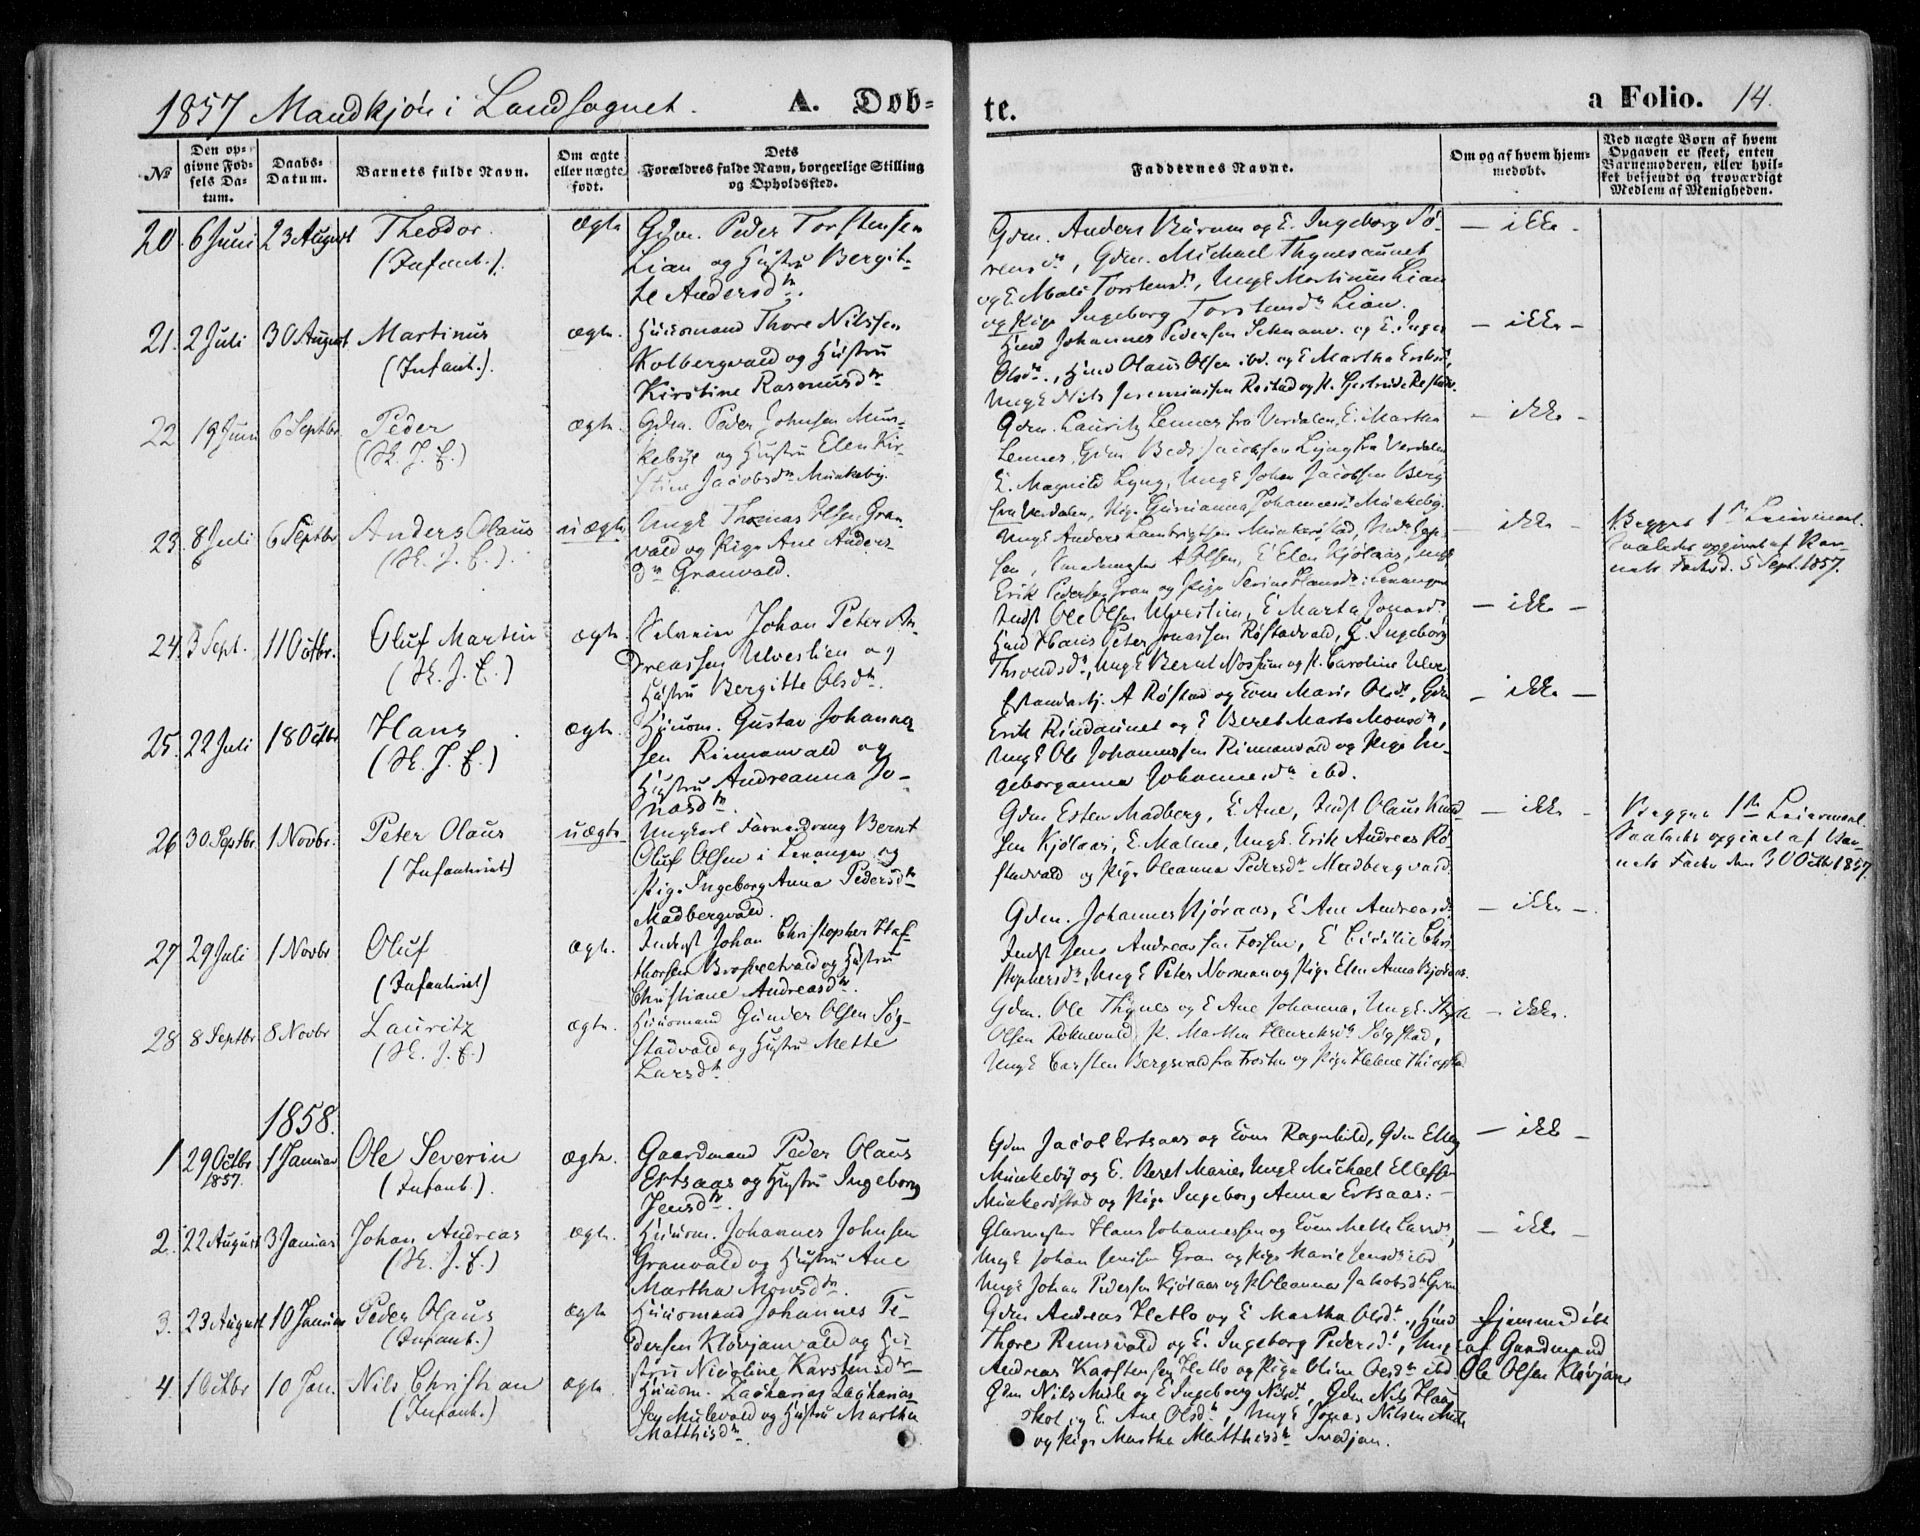 1857 Mandkjøn i Landsognet. A. Døb-
te. a Folio. 14.
No
Den op-
givne Fød-
sels Da-
tum.
Daabs-
Datum.
Barnets fulde Navn.
Om ægte
eller uægte
født.
Dets
Forældres fulde Navn, borgerlige Stilling
og Opholdssted.
Faddernes Navne.
Om og af hvem hjem-
medøbt.
Ved uægte Børn af hvem
Opgaven er skeet, enten
Barnemoderen, eller hvil-
ket bekjendt og troværdigt
Medlem af Menigheden.
20. 6 Juni 23 August Theodor. ægte
(Infanb.).
Gdm. Peder Torstensen
Lian og Hustru Bergit-
te Andersdtr.
Gdm. Anders Burum og E. Ingeborg Sø-
rensdr, Gdm. Michael Thynesaunet
og E. Mali Torstensdr, Ungk Martinus Lian
og Pige Ingeborg Torstensdr Lian.
— ikke —
21. 2 Juli 30 August Martinus ægte.
(Infanb.).
Huusmand Thore Nilssen
Kolbergvald og Hustru
Kirstine Rasmusdtr
Husmd Johannes Pedersen og E. Inger
Olsdr., Husmd Olaus Olsen ibd. og E Martha
Ungk Nils Rostad og P. Gertrude
— ikke —
22 19 Juni 6 Septbr Peder ægte.
(Sk. J. E.)
Gdm. Peder Johnsen Mun-
kebye og Hustru Elen Kir-
stine Jacobsdtr Munkeby.
Gdm. Lauritz Lennes fra Verdalen, E. Martha
Lennes, Gdm Jacobsen Lyng fra Verdalen
E. Magnild Lyng, Ungk Johan Jacobsen Berg
fra Verdalen, Pige Johannesdr Munkeby.
— ikke —
23. 8 Juli 6 Septbr Anders Olaus uægte
(Sk. J. E.).
Ungk Thomas Olsen Gran-
vald og Pige Ane Anders-
dtr Granvald.
Ungk Anders Lambrigtsen Munkerøstad,
sen, A Olsen, E Elen Kjølaas, Ungk
Erik Pedersen Gran og Pige Serine Hansdr i Levanger
— ikke —
Begges 1ste Leiermaal.
Saaledes opgivet af Bar-
nets Fader d. 5 Sept. 1857.
24 3 Sept. 11 Octbr. Oluf Martin ægte.
(Sk. J. E.)
Johan Peter An-
dreassen Ulvestien og
Hustru Bergitte Olsdtr.
Indst Ole Olsen Ulvestien, E Marta Jonasdr
Husmd Hans Peter Jonassen Røstadvald, E. Ingeborg
Ungk Bernt Nossum og P. Caroline Ulve
— ikke —
25. 22 Juli 18 Octbr Hans ægte.
(Sk. J. E.)
Huusm. Gustav Johannes-
sen Rinnanvald og
Hustru Andreanna Jo-
nasdtr
A Røstad og Kone Marie Olsdr, Gdm
Erik Rindaunet og E Beret Marta Monsdr,
Ungk Ole Johannessen Rinnanvald og Pige In-
geborganna Johannesdr ibd.
— ikke —
26 30 Septbr. 1 Novbr. Peter Olaus uægte
(Infantivist)
Ungkarl Bernt
Oluf Olsen i Levanger og
Pige Ingeborg Anna Pedersdtr
Madbergvald.
Gdm Esten Madberg, E Ane, Indst Olaus Knud-
sen Kjølaas, E. Malene, Ungk. Erik Andreas Rø-
stadvald og Pige Oleanna Pedersdr Madbergvald.
— ikke —
Begges 1ste Leiermaal.
Saaledes opgivet af Bar-
nets Fader den 30 Octbr 1857.
27 29 Juli 1 Novbr Oluf ægte.
(Infantivist)
Indst Johan Christopher Haf-
thorsen og Hustru
Christiane Andreasdtr.
Gdm. Johannes Kjøraas, E Ane Andreasdr
Indst Jens Andreassen Fossen, E Cicilie Chri-
stophersdr, Ungk Peter Norman og Pige Elen Anna
— ikke —
28 8 Septbr 8 Novbr Lauritz ægte.
(Sk. J. E.)
Huusmand Gunder Olsen Søg-
stadvald og Hustru Mette
Larsdtr
Gdm. Ole Thynes og E Ane Johanna, Ungk.
Olsen P. Martha Henriksdr Søgstad,
Ungk Carsten Bergsvald fra Frosten og Pige Helene
— ikke.
1858.
1 29 Octbr 1 Januar Ole Severin ægte.
1857.
(Infanb.).
Gaardmand Peder Olaus
Ertsaas og Hustru Ingeborg
Jensdtr.
Gdm Jacob Ertsaas og Kone Ragnhild, Gdm
Munkeby og E. Beret Marie, Ungk Michael
Munkerøstad og Pige Ingeborg Anna Ertsaas.
— ikke —
2. 22 August 3 Januar Johan Andreas ægte.
(Sk. J. E.)
Huusm. Johannes Johnsen
Granvald og Hustru Ane
Martha Monsdtr.
Glarmester Hans Johannessen og Kone Mette Larsdr,
Ungk Johan Jensen Gran og Pige Marie Jensdr ibd
Ungk Johan Pedersen Kjølaas og P Oleanna Jakobsdr Gran
— ikke —
3. 23 August 10 Januar Peder Olaus ægte
(Infanb.)
Huusmand Johannes Pe-
dersen Kløvjanvald og Hu-
stru Nicoline Karstensdtr
Gdm Andreas Hetlo og E Martha Olsdr., Husmd
Thore og E. Ingeborg Pedersdr, Ungk
Andreas Karstensen Hetlo og Pige Oline Olsdr ibd
hjemmedøbt
af Gaardmand
Ole Olsen Kløvjan.
4. 1 Octbr 10 Jan. Nils Christian ægte.
(Infanb.)
Huusm. Zacharias Zacharias-
sen Mulevald og Hustru Martha
Matthisdtr.
Gdm Nils Mule og E Ingeborg Nilsdr, Gdm Nils
og E. Ane Olsdr, Ungk Jonas Nilsen Mule
og Pige Martha Matthisdr